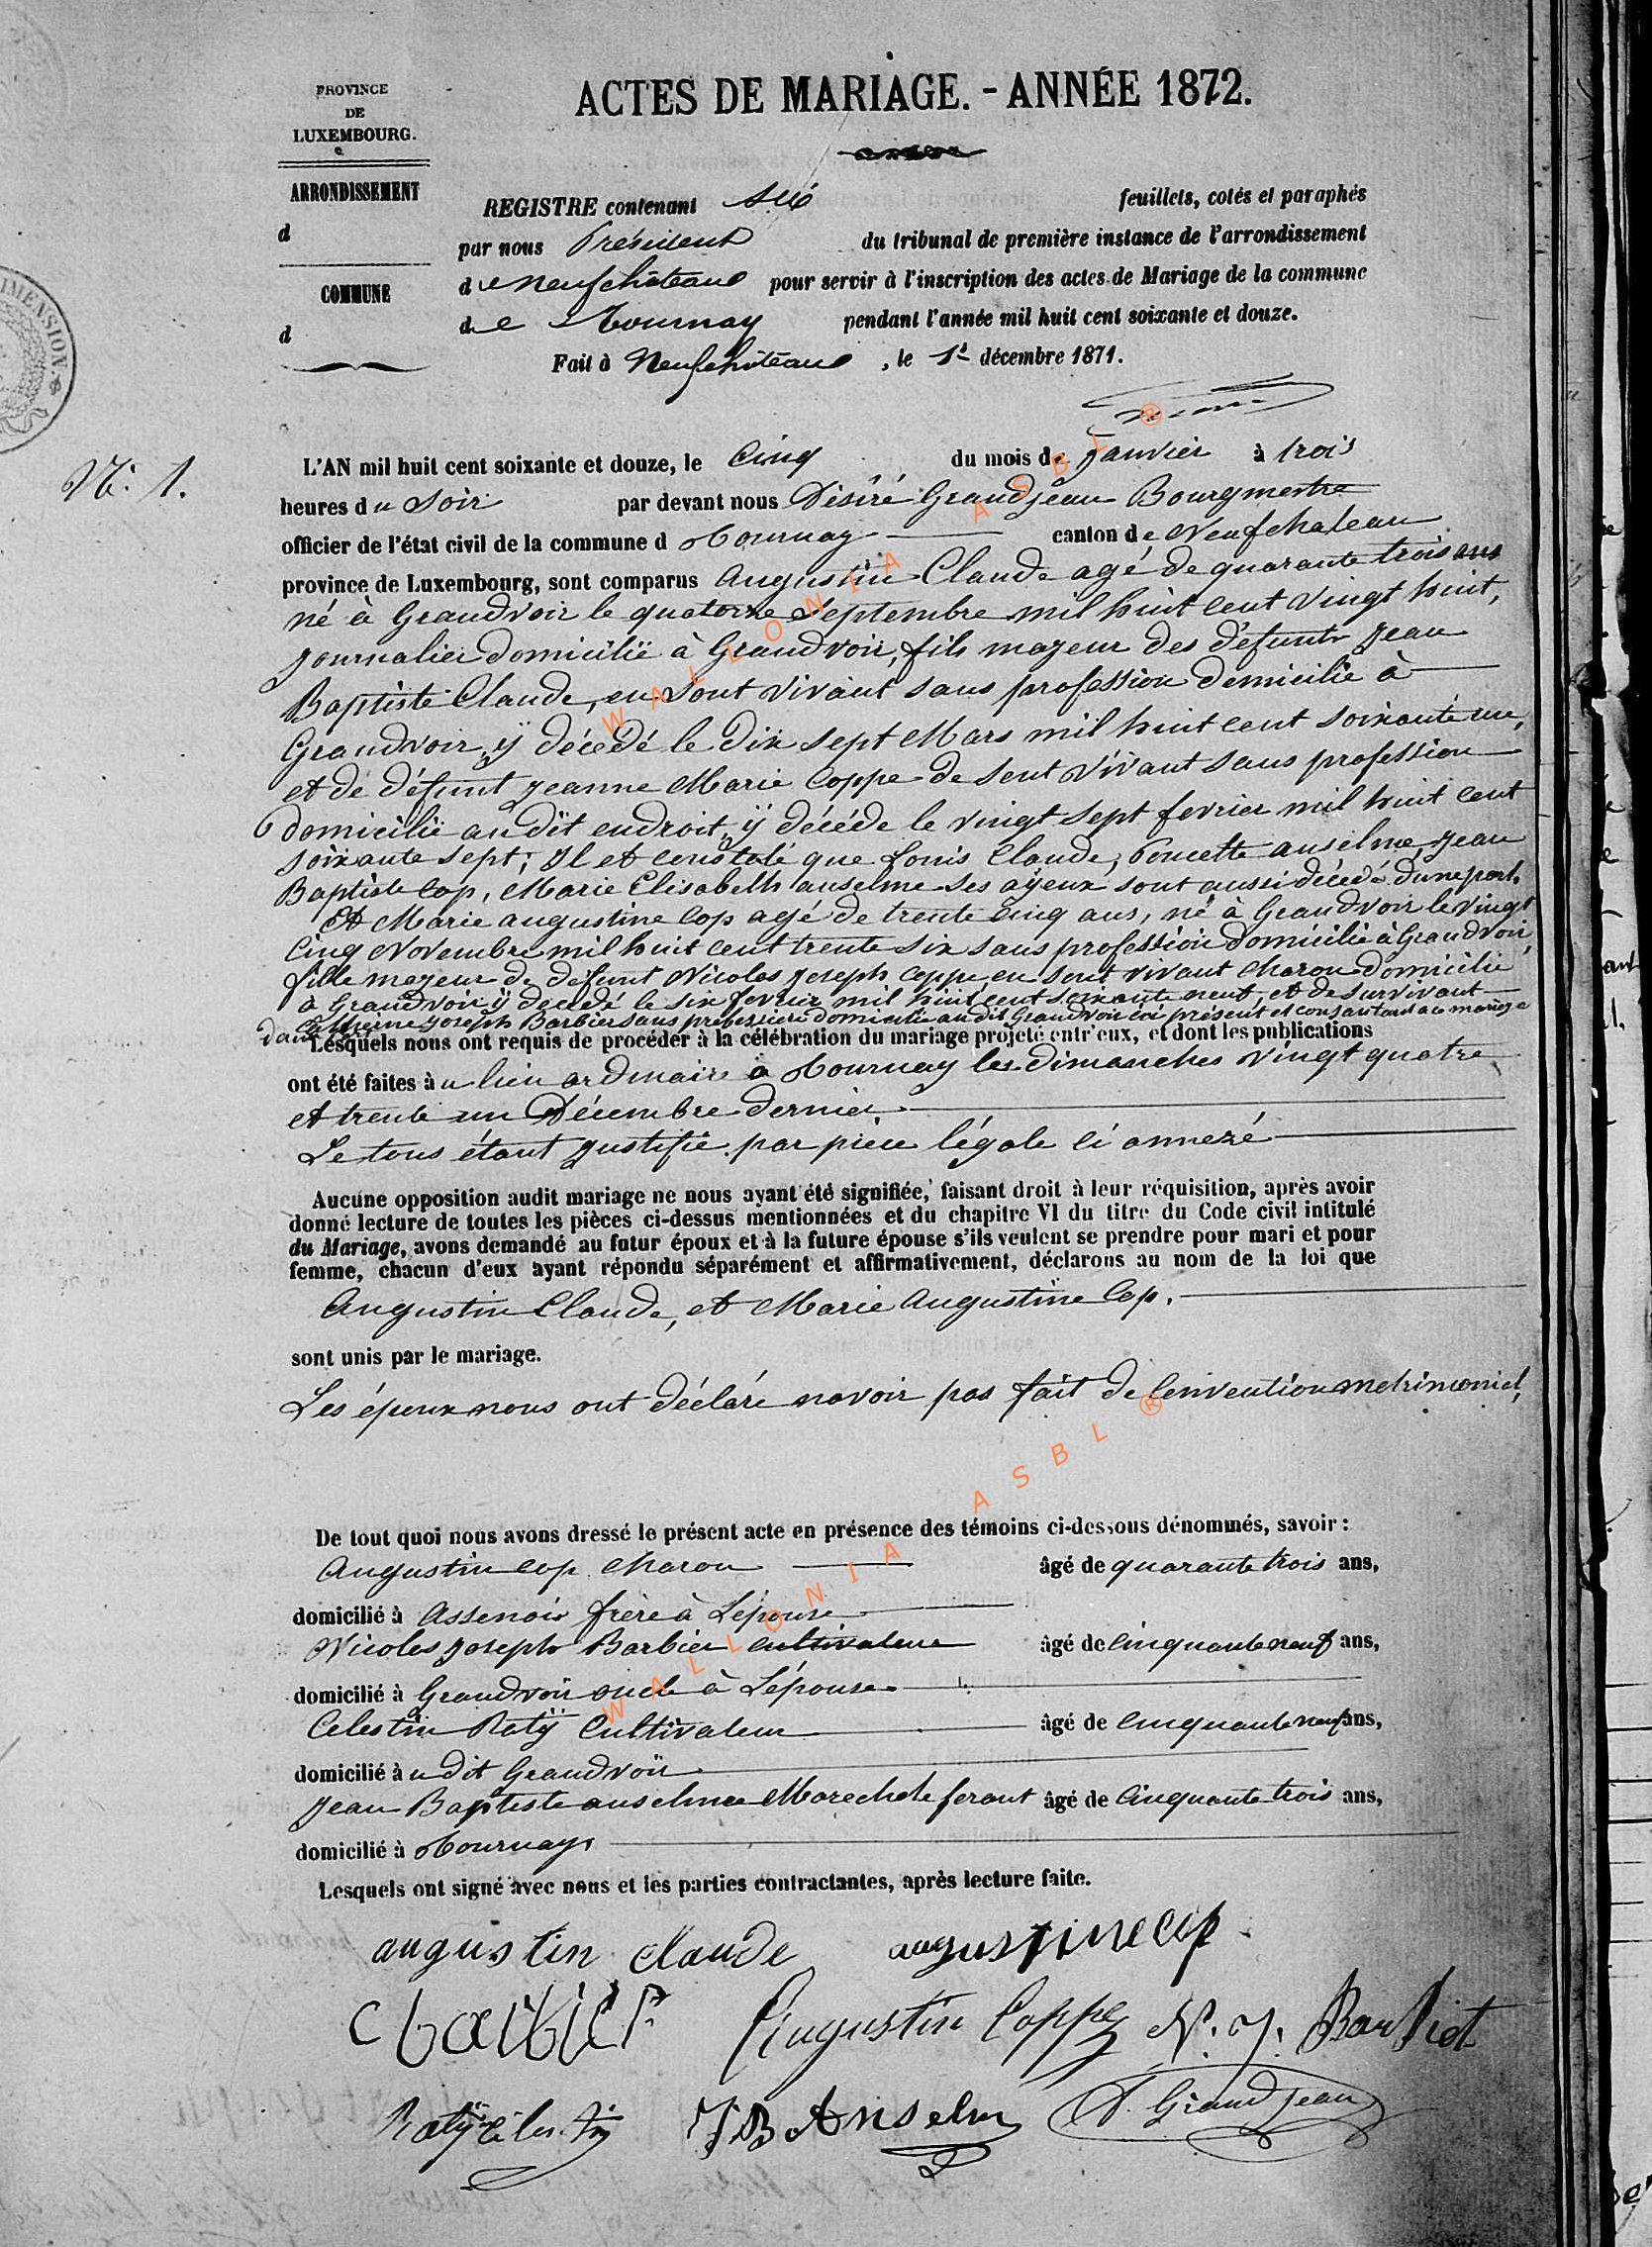 PROVINCE
DE
LUXEMBOURG.
ARRONDISSEMENT
d
COMMUNE
d
ACTES DE MARIAGE. - ANNÉE 1872.
REGISTRE contenant six feuillets, cotés et paraphés
par nous Président du tribunal de première instance de l'arrondissement
de Neufchâteau pour servir à l'inscription des actes de Mariage de la commune
de Tournay pendant l'année mil huit cent soixante et douze.
Fait à Neufchâteau, le 1r décembre 1871.
N: 1.
L'AN mil huit cent soixante et douze, le Cinq du mois de Janvier à trois
heures du Soir par devant nous Désiré Grandjean Bourgmestre
officier de l'état civil de la commune d Tournay canton de Neufchateau
province de Luxembourg, sont comparus Augustin Claude agé de quarante trois ans
né à Grandvoir le quatorze Septembre mil huit cent vingt huit,
journalier domicilié à Grandvoir, fils majeur des défunts Jean
Baptiste Claude, en sont vivant sans profession domicilié à
Grandvoir, ÿ décédé le dix sept Mars mil huit cent soixante une,
et de défunt Jeanne Marie Coppe de sont vivant sans profession
domicilié au dit endroit, ÿ décéde le vingt sept fevrier mil huit cent
soixante sept; Il et constaté que Louis Claude, Poncette anselme Jean
Baptiste Cop, Marie Elisabeth anselme ses ayeux sont aussi décédé dune part.
Et Marie augustine Cop agé de trente cinq ans, né à Grandvoir le vingt
Cinq Novembre mil huit cent trente six sans profession domicilié à Grandvoir,
fille majeur de défunt Nicolas Joseph Coppe en sont vivant charon domicilié
à Grandvoir ÿ decédé le six fevrier mil huit cent soixante neuf, et de survivant
Catherine Joseph Barbier sans profession domicilié au dit Grandvoir ici présent et consantant a ce mariage
Lesquels nous ont requis de procéder à la célébration du mariage projeté entr'eux, et dont les publications
ont été faites au lieu ordinaire à Tournay les dimanches vingt quatre
et trente un Décembre dernier.
Le tous étant justifié par pièce légale ci annexé
Aucune opposition audit mariage ne nous ayant été signifiée, faisant droit à leur réquisition, après avoir
donné lecture de toutes les pièces ci-dessus mentionnées et du chapitre VI du titre du Code civil intitulé
du Mariage, avons demandé au futur époux et à la future épouse s'ils veulent se prendre pour mari et pour
femme, chacun d'eux ayant répondu séparément et affirmativement, déclarons au nom de la loi que
Augustin Claude, et Marie Augustine Cop.
sont unis par le mariage.
Les époux nous ont déclaré navoir pas fait de Convention matrimoniel,
De tout quoi nous avons dressé le présent acte en présence des témoins ci-dessous dénommés, savoir :
Augustin Cop charon âgé de quarante trois ans,
domicilié à Assenois frère à Lépouse
Nicolas Joseph Barbier Cultivateur âgé de Cinquante neuf ans,
domicilié à Grandvoir oncle à Lépouse
Celestin Ratÿ Cultivateur âgé de Cinquante neuf ans,
domicilié à u dit Grandvoir
Jean Baptiste anselme Marechale ferant âgé de Cinquante trois ans,
domicilié à Tournay
Lesquels ont signé avec nous et les parties contractantes, après lecture faite.
augustin claude augustine cop
C barbier Augustin Coppe N. J. Barbiet
Ratÿ Celestin JB Anselme D. Grandjean
WALLONIA ASBL ®
WALLONIA ASBL ®